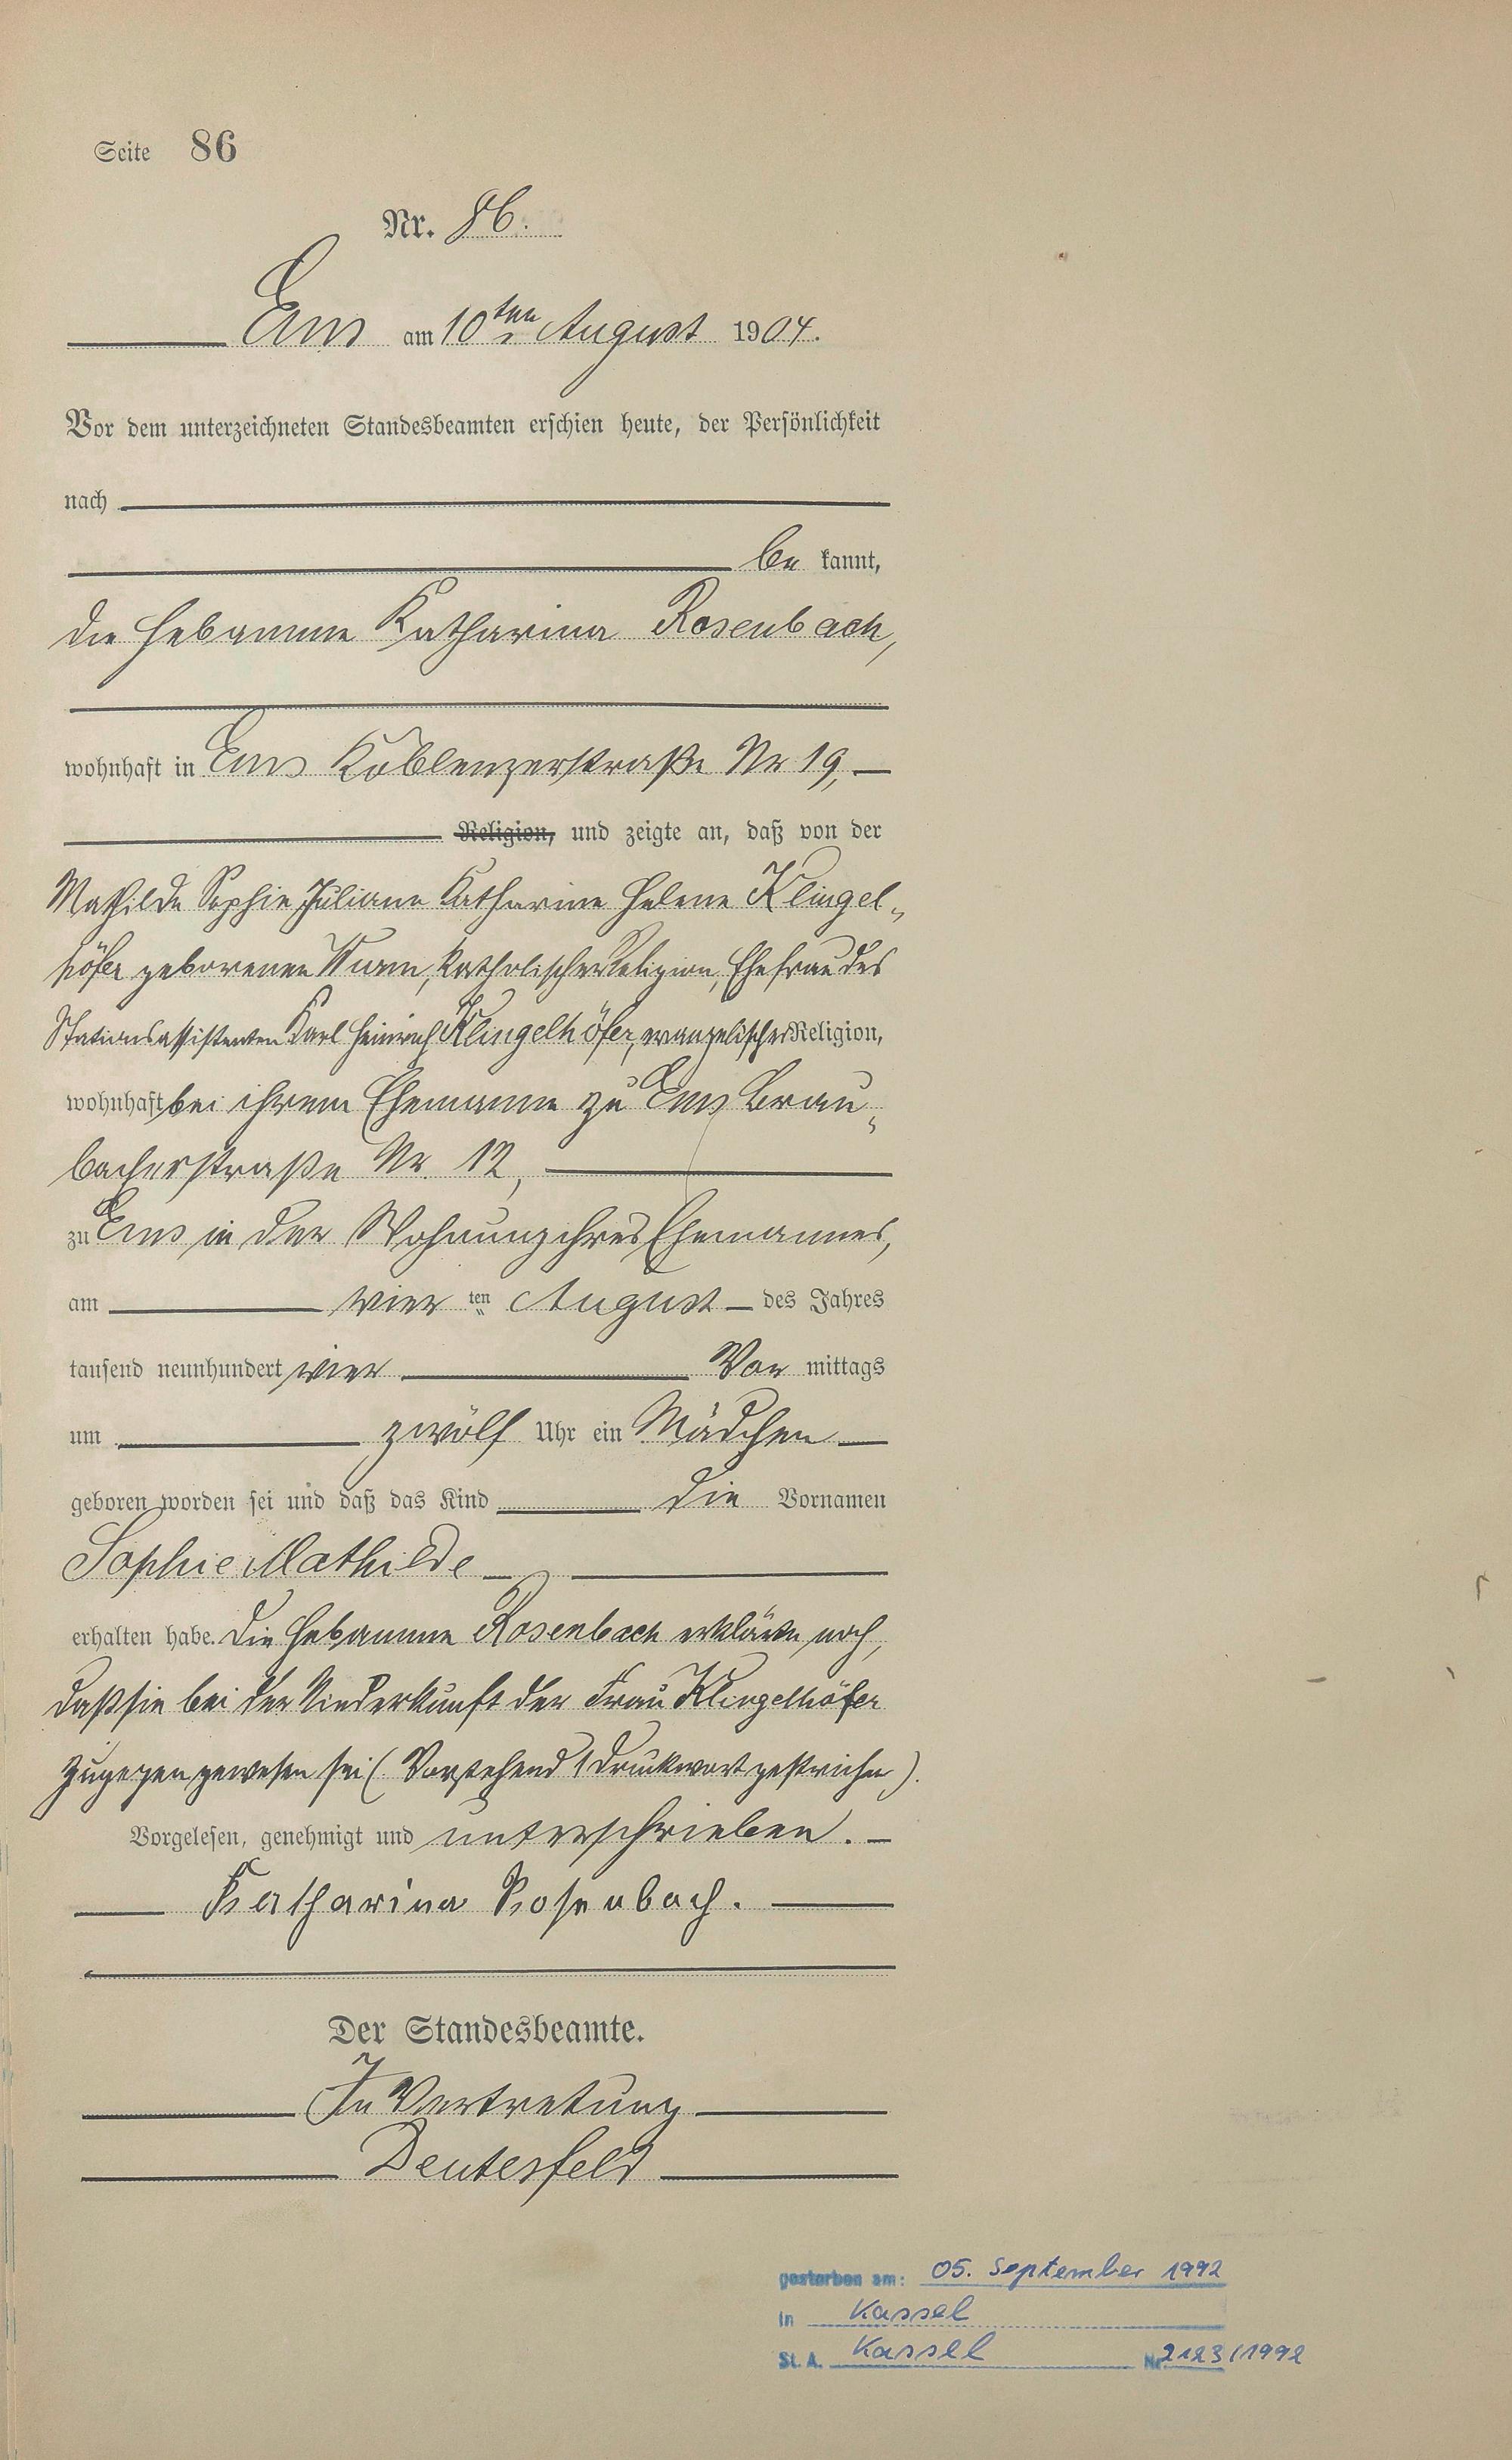 Seite 86
Nr. 86.
Ems am 10ten August 1904.
Vor dem unterzeichneten Standesbeamten erschien heute, der Persönlichkeit
nach
be kannt,
die Hebamme Katharina Rosenbach,
wohnhaft in Ems Koblenzerstraße Nr 19,
Religion, und zeigte an, daß von der
Mathilde Sophie Juliane Katharine Helene Klingel-
höfer geborenen Wurm, katholischer Religion, Ehefrau des
Stationsassistenten Karl Heinrich Klingelhöfer, evangelischer Religion,
wohnhaft bei ihrem Ehemanne zu Ems Brau-
bacherstraße Nr. 12,
zu Ems in der Wohnung ihres Ehemannes,
am vier ten August des Jahres
tausend neunhundert vier Vor mittags
um zwölf Uhr ein Mädchen
geboren worden sei und daß das Kind die Vornamen
Sophie Mathilde
erhalten habe. Die Hebamme Rosenbach erklärte noch,
daß sie bei der Niederkunft der Frau Klingelhöfer
zugegen gewesen sei (Vorstehend 1 Druckwort gestrichen).
Vorgelesen, genehmigt und unterschrieben.
Katharina Rosenbach.
Der Standesbeamte.
In Vertretung
Deutesfeld
gestorben am: 05. September 1992
in Kassel
St. A. Kassel Nr. 2123/1992